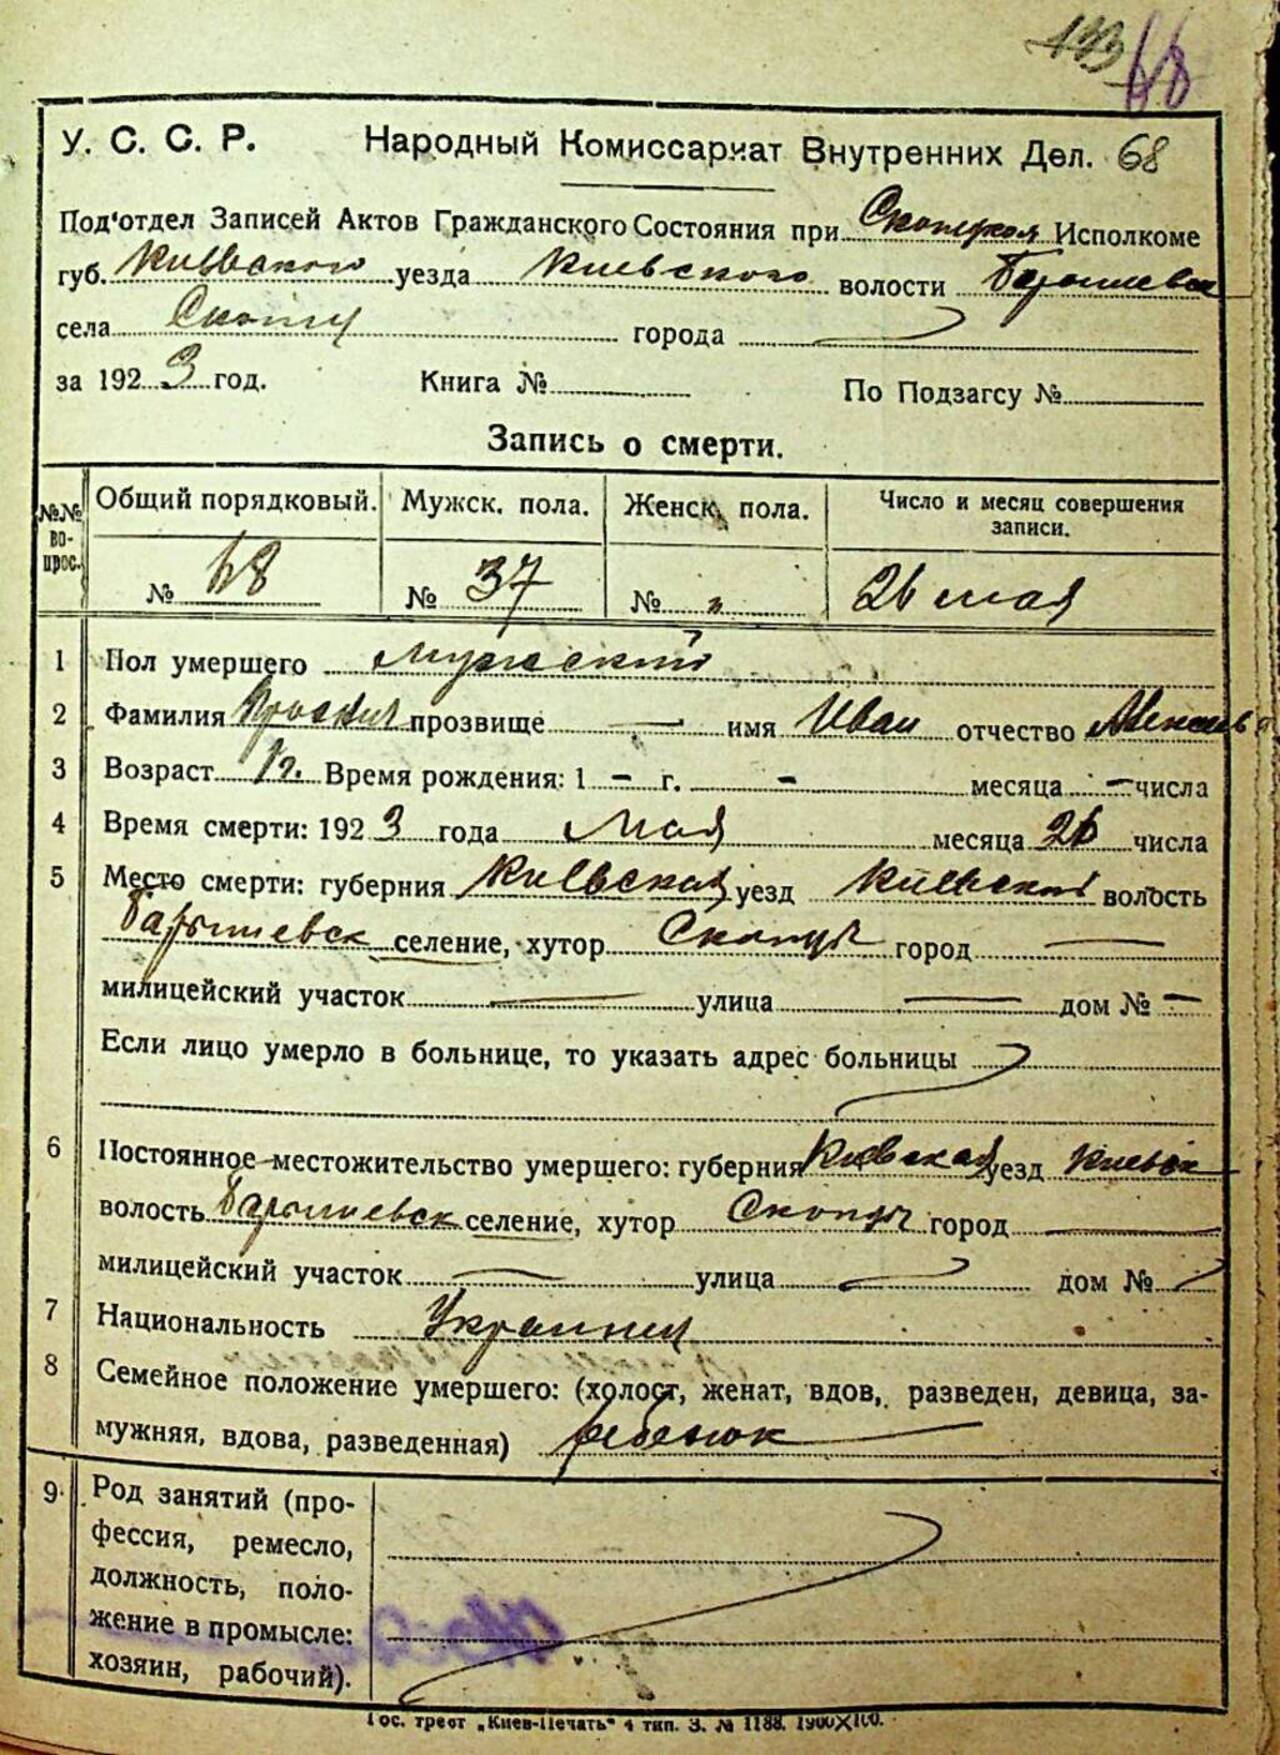 113 68
У. С. С. Р. Народный Комиссариат Внутренних Дел. 68
Под'отдел Записей Актов Гражданского Состояния при Исполкоме
губ. Киевского уезда Киевского волости Барышевск
села Скопцы города
за 1923 год. Книга № По Подзагсу №
Запись о смерти.
№№ во-прос. Общий порядковый. Мужск. пола. Женск. пола. Число и месяц совершения записи.
№ 68 № 37 № „ 26 мая
1 Пол умершего мужской
2 Фамилия прозвище — имя Иван отчество
3 Возраст Время рождения: 1 - г. - месяца - числа
4 Время смерти: 1923 года Мая месяца 26 числа
5 Место смерти: губерния Киевская уезд Киевский волость
Барышевск селение, хутор Скопцы город —
милицейский участок — улица — дом № —
Если лицо умерло в больнице, то указать адрес больницы
6 Постоянное местожительство умершего: губерния Киевская уезд Киевск
волость Барышевск селение, хутор Скопцы город —
милицейский участок — улица — дом №
7 Национальность Украинец
8 Семейное положение умершего: (холост, женат, вдов, разведен, девица, за-
мужняя, вдова, разведенная) ребенок
9 Род занятий (про-
фессия, ремесло,
должность, поло-
жение в промысле:
хозяин, рабочий).
Гос. трест „Киев-Печать“ 4 тип. З. № 1188. 1900X100.